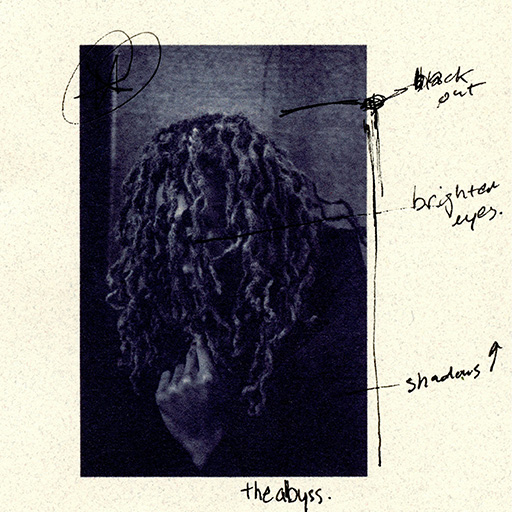 black
out
brighten
eyes.
shadows ↑
the abyss.